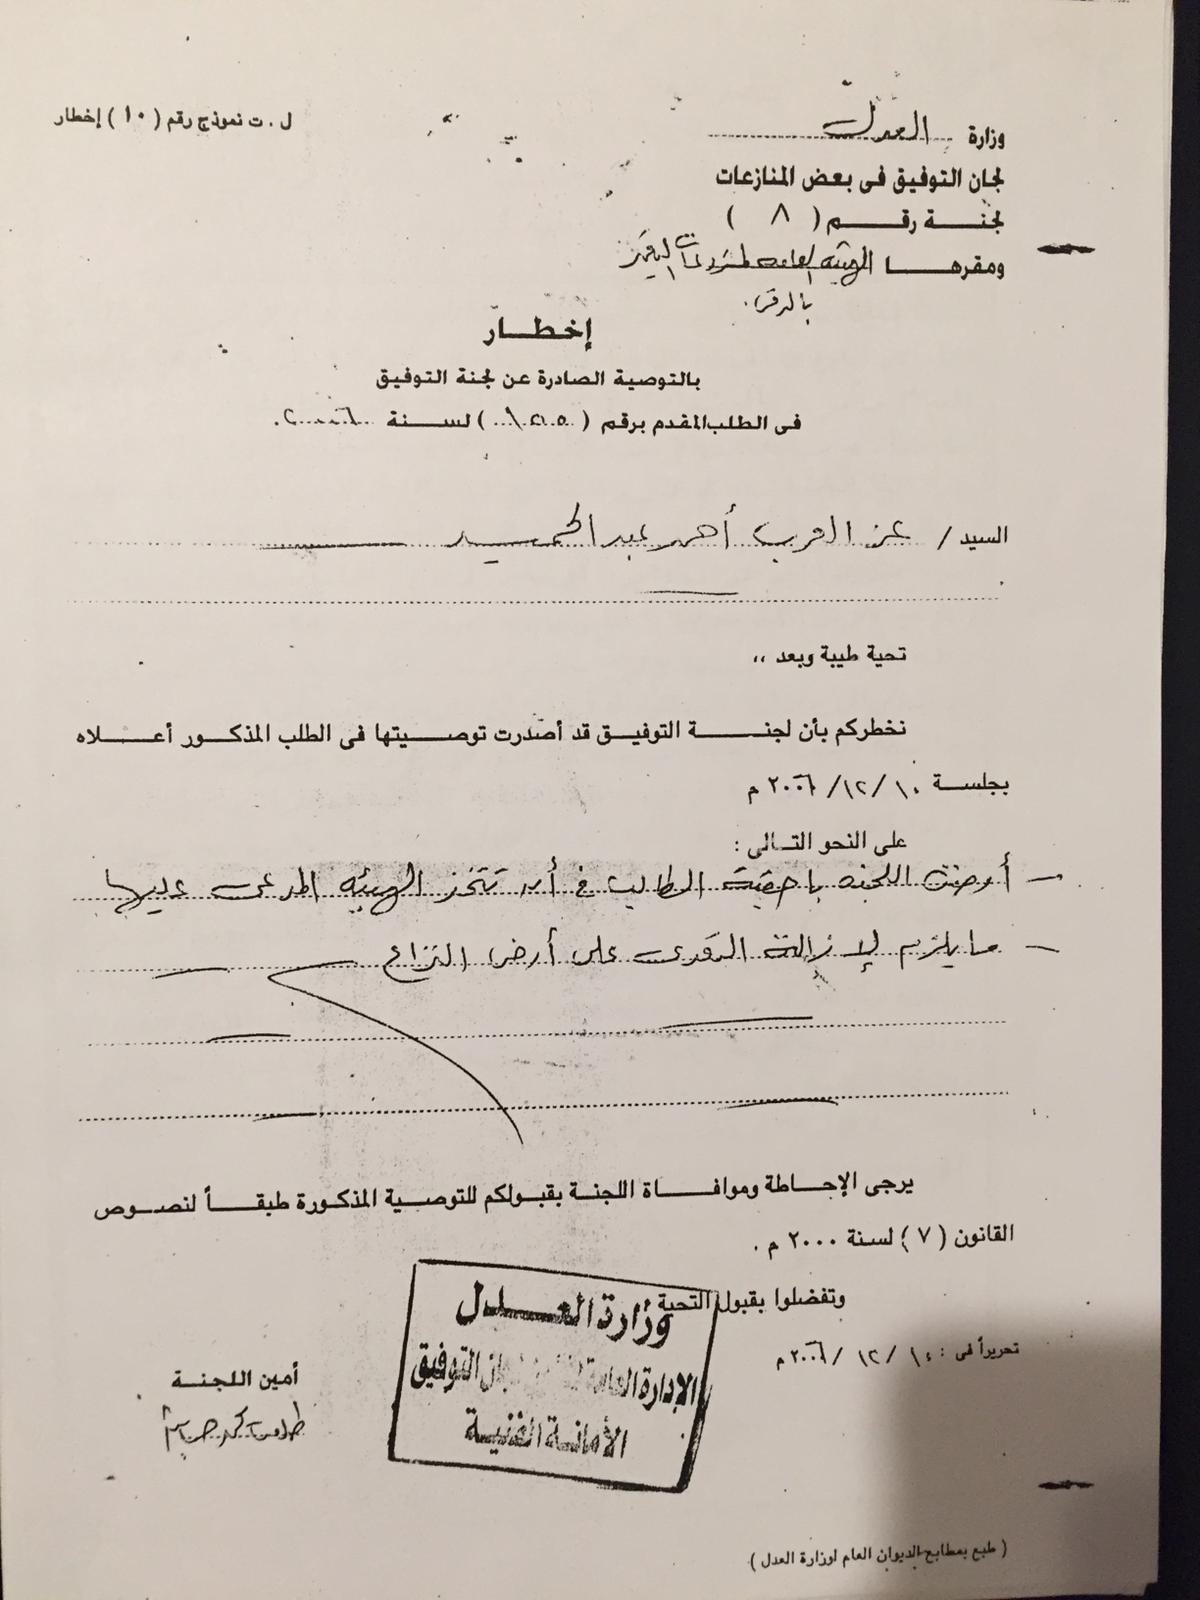 ل . ت نموذج رقم ( ١٠ ) إخطار
وزارة العدل
لجان التوفيق فى بعض المنازعات
لجنـة رقـم ( ٨ )
ومقرهـا الهيئه العامه لمشروعات التعمير
بالدقى .
إخطـار
بالتوصية الصادرة عن لجنة التوفيق
فى الطلب المقدم برقم ( ) لسنة ٢٠٠٦ .
السيد / عز العرب أحمد عبد الحميد
تحية طيبة وبعد ،،
نخطركم بأن لجنـة التوفيـق قد أصدرت توصـيتها فى الطلب المذكـور أعـلاه
بجلسـة ١٠ / ١٢ / ٢٠٠٦ م
على النحو التـالى :
- أوصت اللجنه بأحقية الطالب فى أن تتخذ الهيئه المدعى عليها
- ما يلزم لإزالة التعدى على أرض النزاع
يرجى الإحـاطة وموافـاة اللجنة بقبولكم للتوصية المذكورة طبقـاً لنصـوص
القانون ( ٧ ) لسنة ٢٠٠٠ م .
وتفضلوا بقبول التحية
تحريراً فى : ١٠ / ١٢ / ٢٠٠٦ م
وزارة العـدل
الإدارة العامة لجان التوفيق
الأمانـة الفنيـة
أمين اللجنـة
( طبع بمطابع الديوان العام لوزارة العدل )